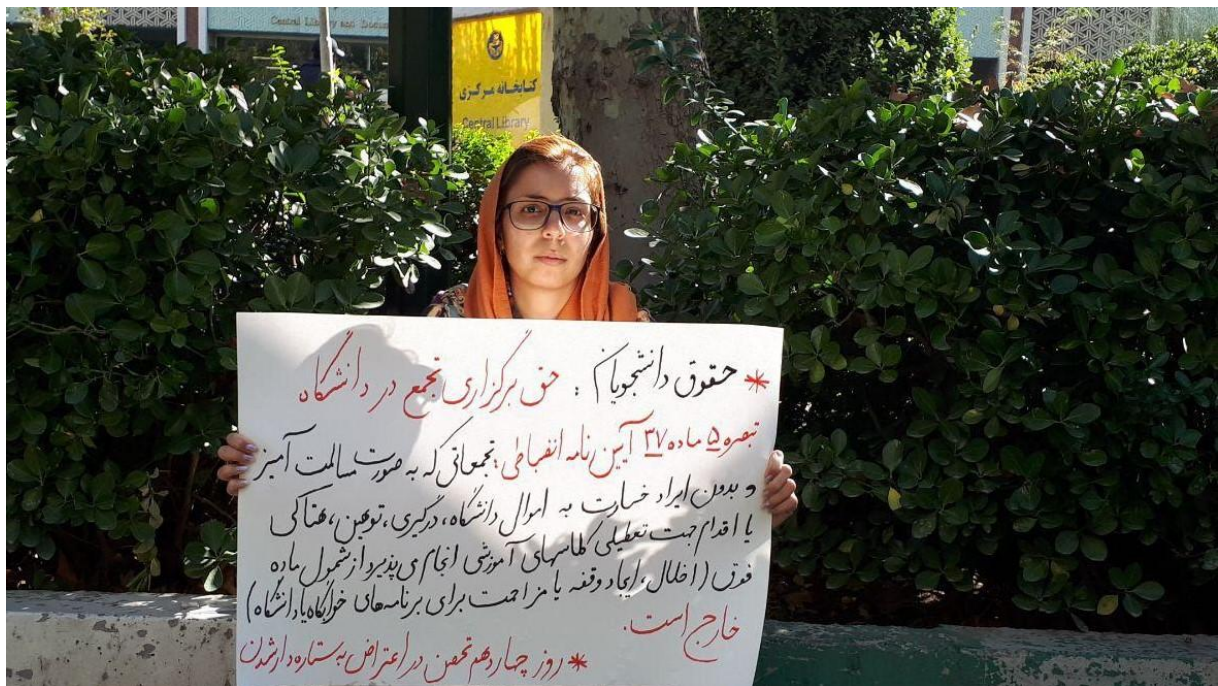 Central Library and Docume
کتابخانه مرکزی
Central Library
* حقوق دانشجویان : حق برگزاری تجمع در دانشگاه
تبصره ۵ ماده ۳۷ آیین نامه انضباطی : تجمعاتی که به صورت مسالمت آمیز
و بدون ایراد خسارت به اموال دانشگاه، درگیری، توهین، هتاکی
یا اقدام جهت تعطیلی کلاسهای آموزشی انجام می پذیرد از شمول ماده
فوق (اخلال، ایجاد وقفه یا مزاحمت برای برنامه های خوابگاه یا دانشگاه)
خارج است.
* روز چهاردهم تحصن در اعتراض به ستاره دار شدن